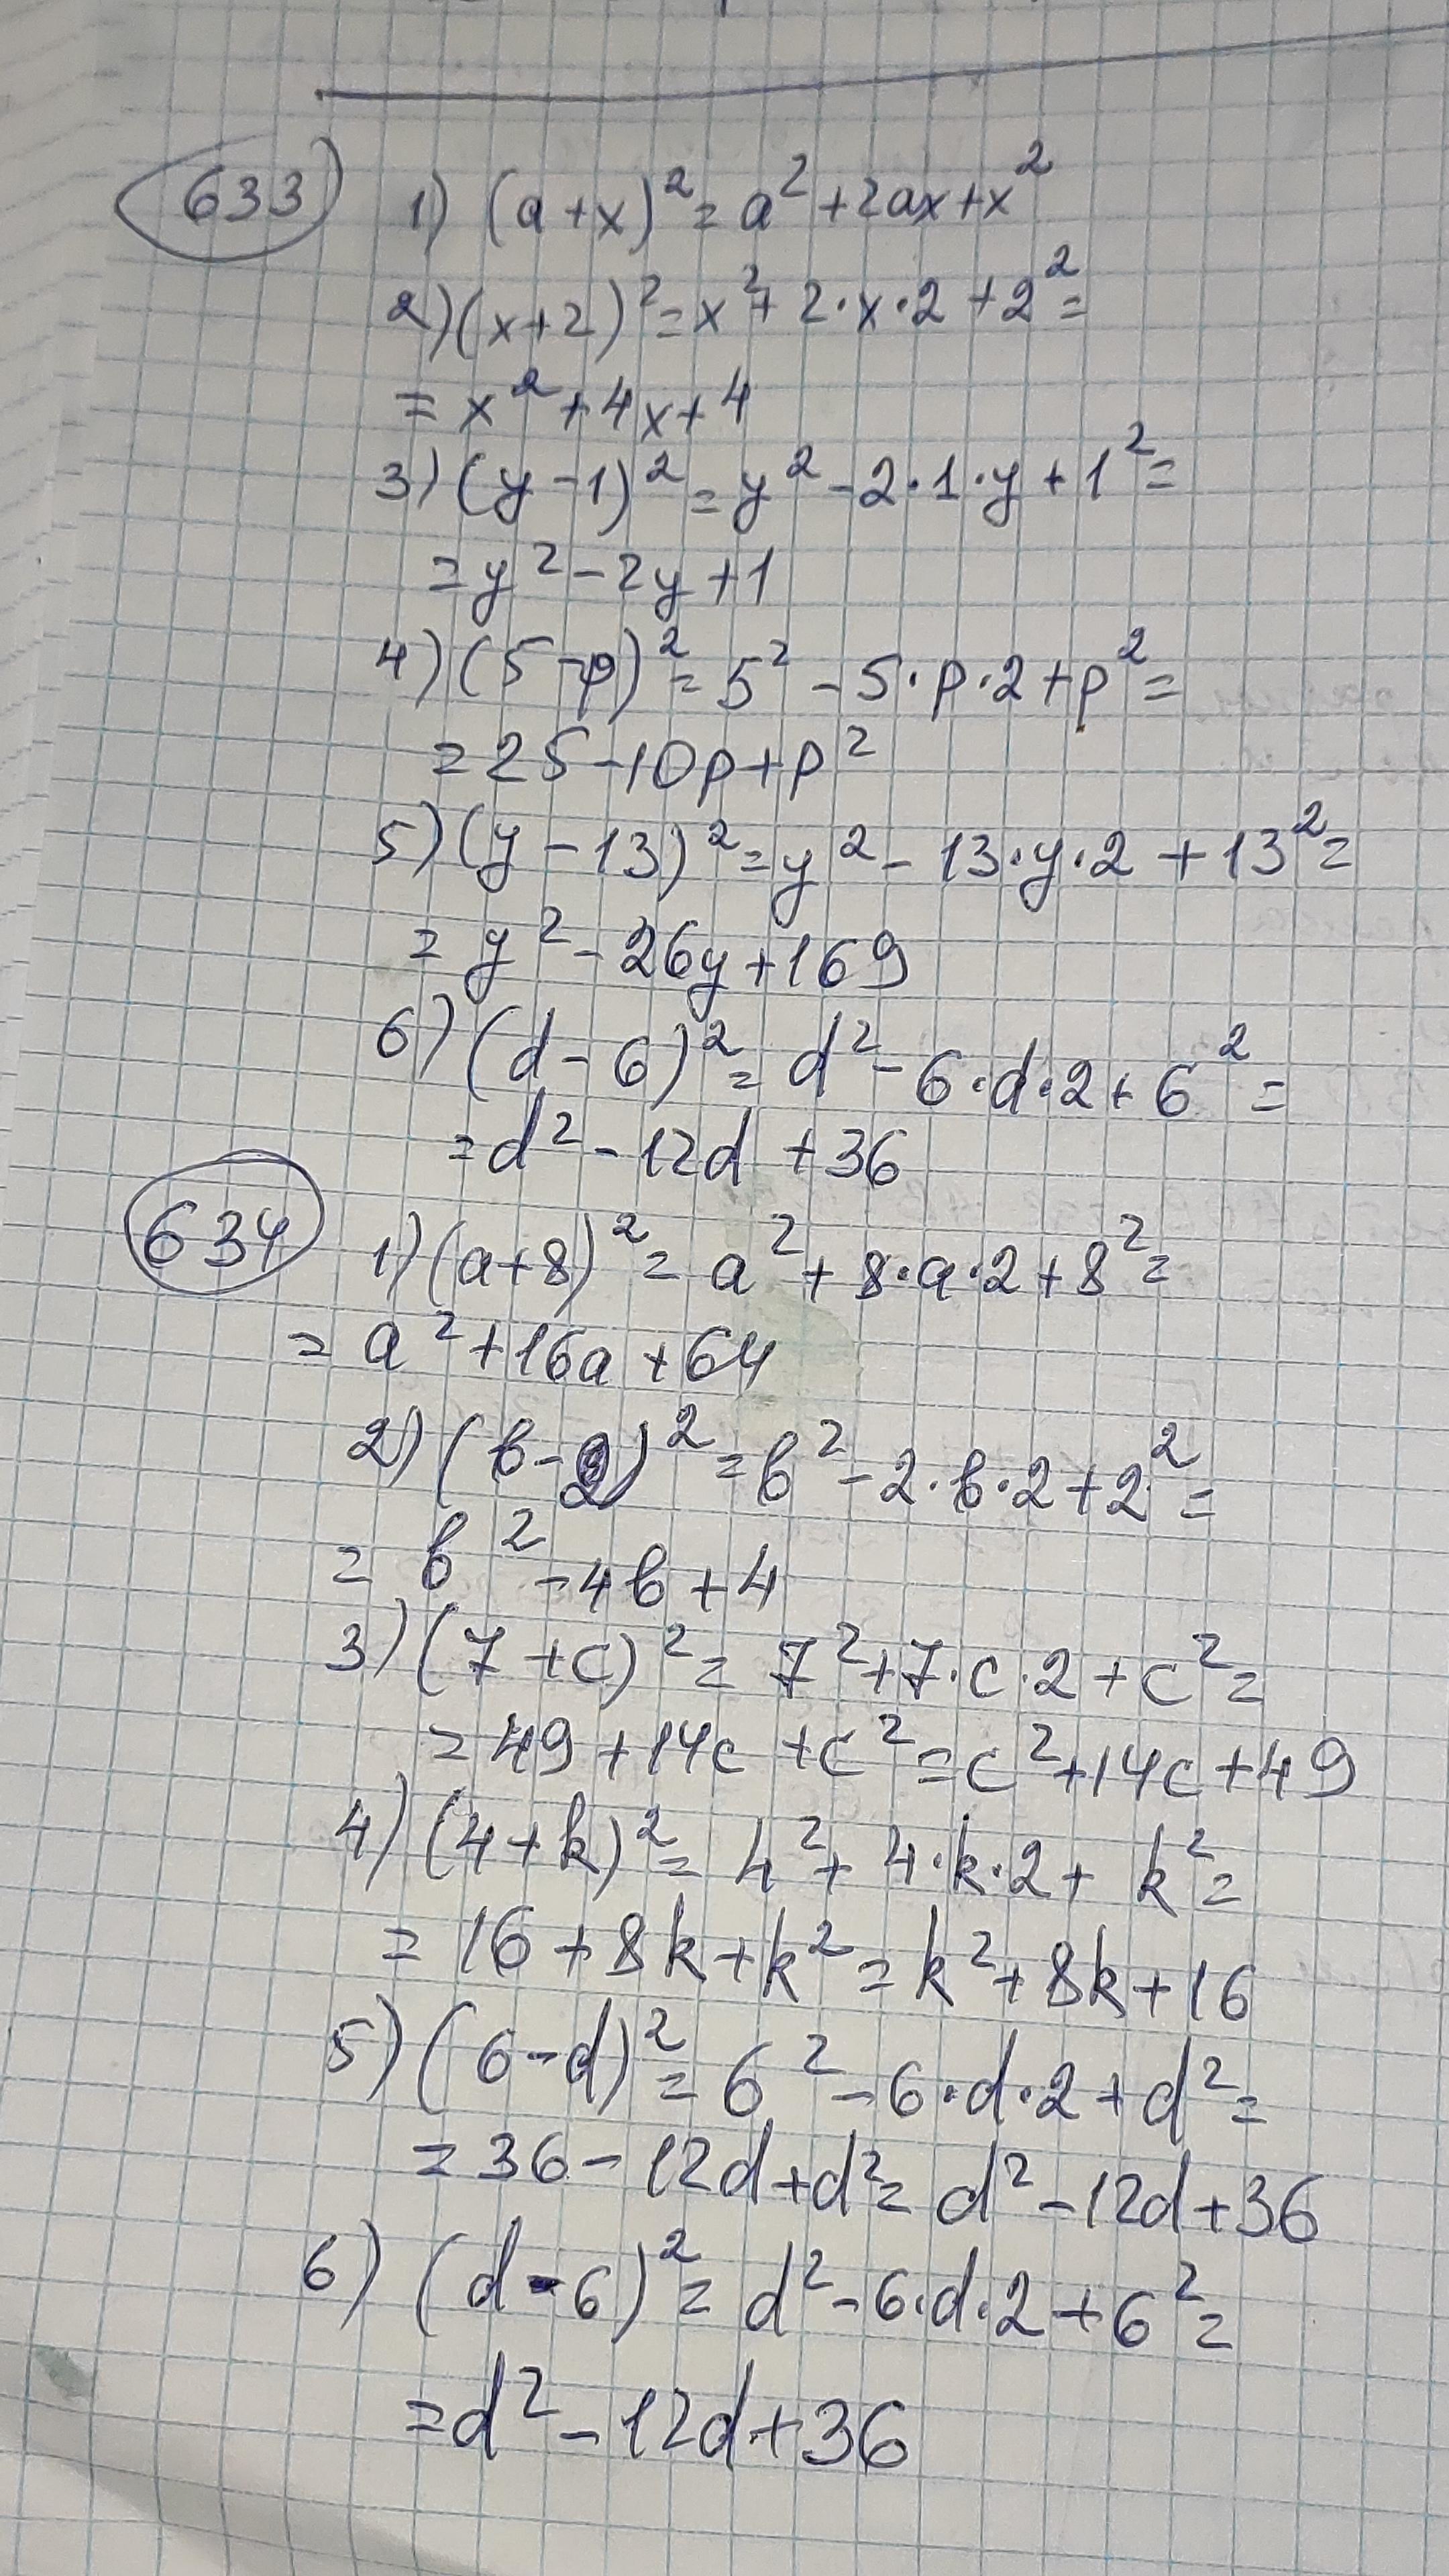 633 1) (a+x)² = a² + 2ax + x²
2) (x+2)² = x² + 2·x·2 + 2² =
= x² + 4x + 4
3) (y-1)² = y² - 2·1·y + 1² =
= y² - 2y + 1
4) (5-p)² = 5² - 5·p·2 + p² =
= 25 - 10p + p²
5) (y-13)² = y² - 13·y·2 + 13² =
= y² - 26y + 169
6) (d-6)² = d² - 6·d·2 + 6² =
= d² - 12d + 36
634 1) (a+8)² = a² + 8·a·2 + 8² =
= a² + 16a + 64
2) (в-2)² = в² - 2·в·2 + 2² =
= в² - 4в + 4
3) (7+c)² = 7² + 7·c·2 + c² =
= 49 + 14c + c² = c² + 14c + 49
4) (4+k)² = 4² + 4·k·2 + k² =
= 16 + 8k + k² = k² + 8k + 16
5) (6-d)² = 6² - 6·d·2 + d² =
= 36 - 12d + d² = d² - 12d + 36
6) (d-6)² = d² - 6·d·2 + 6² =
= d² - 12d + 36